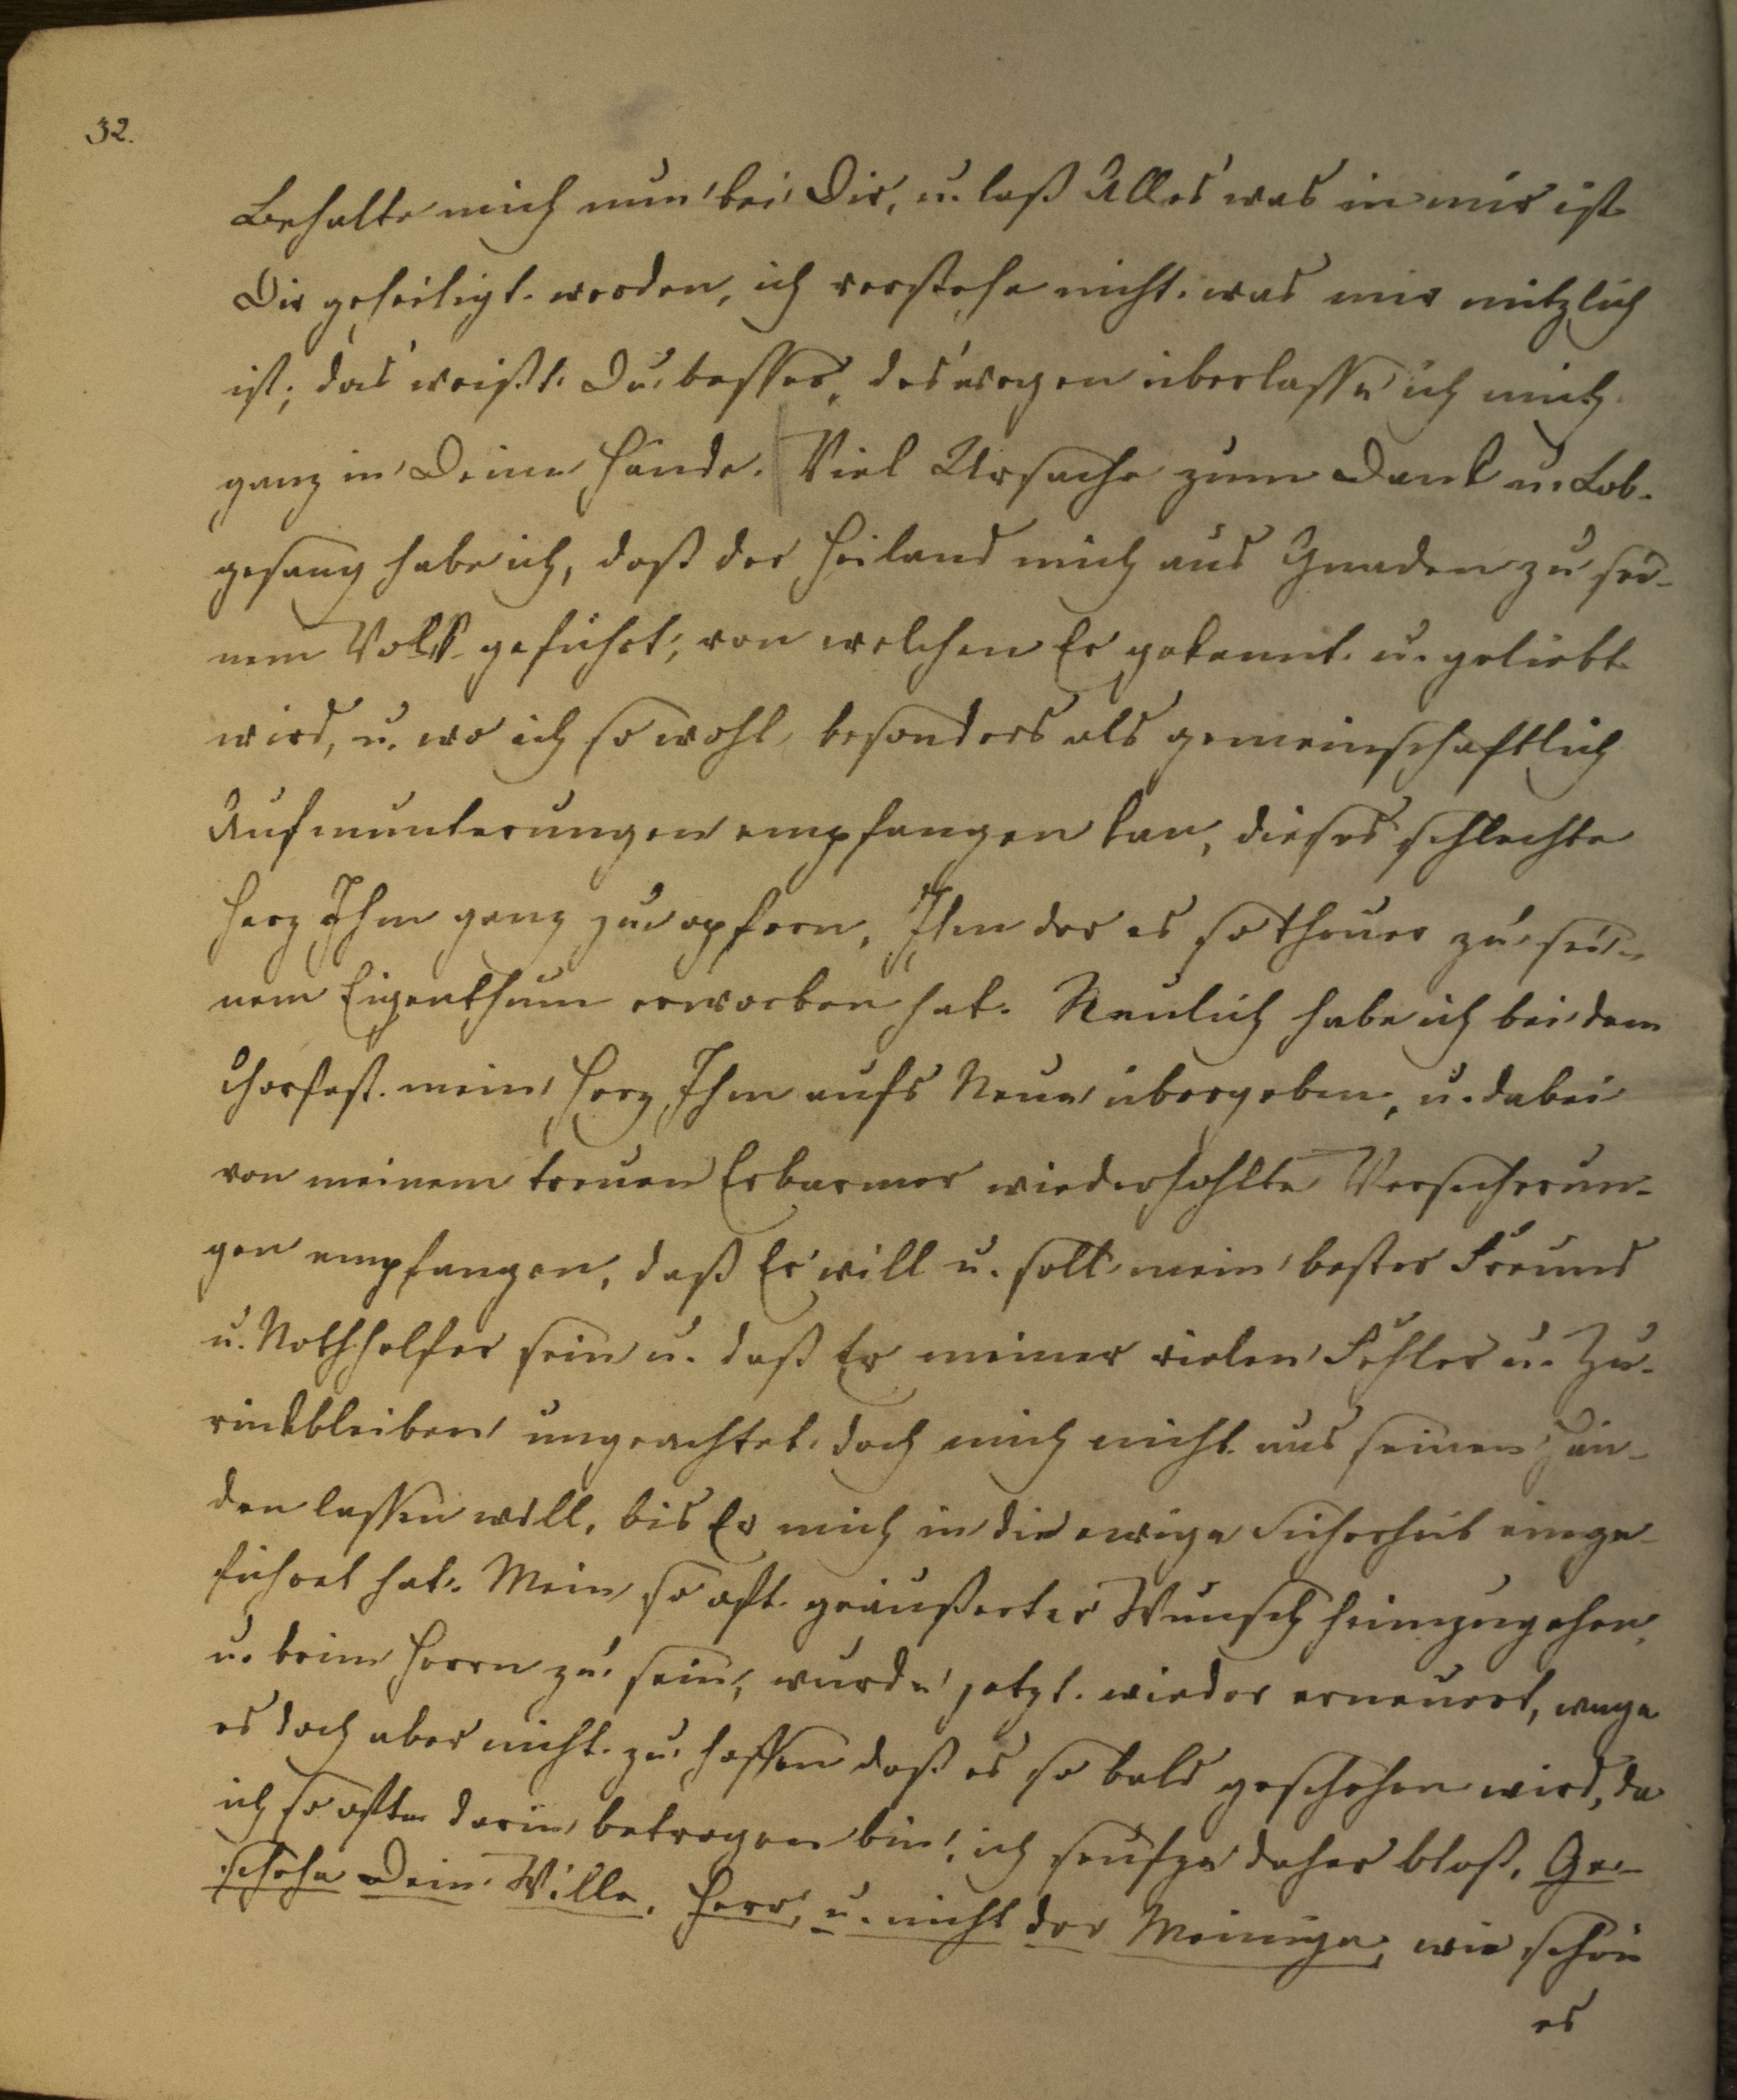 32.
Behalte mich nun bei Dir, u. laß Alles was in mir ist
Dir geheiligt werden, ich verstehe nicht was mir nützlich
ist; das weißt Du besser, deswegen überlasse ich mich
ganz in Deine Hände. Viel Ursache zum Dank u. Lob-
gesang habe ich, daß der Heiland mich aus Gnaden zu sei-
nem Volk geführt; von welchen Er gekannt u. geliebt
wird, u. wo ich so wohl besonders als gemeinschaftlich
Aufmunterungen empfangen kan, dieses schlechte
Herz Ihm ganz zu opfern, Ihm der es so theuer zu sei-
nem Eigenthum erworben hat. Neulich habe ich bei dem
Chorfest mein Herz Ihm aufs Neue übergeben, u. dabei
von meinem treuen Erbarmer wiederhohlte Versicherun-
gen empfangen, daß Er will u. soll mein bester Freund
u. Nothhelfer sein u. daß Er meiner vielen Fehler u. Zu-
rückbleiben ungeachtet doch mich nicht aus seinen Hän-
den lassen will, bis Er mich in die ewige Sicherheit einge-
führet hat. Mein so oft geäußerter Wunsch heimzugehen,
u. beim Herrn zu sein, wurde jetzt wieder erneuert, wage
es doch aber nicht zu hoffen daß es so bald geschehen wird, da
ich so ofte darin betrogen bin; ich seufze daher bloß, Ge-
schehe Dein Wille, Herr, u. nicht der Meinige, wie schön
es